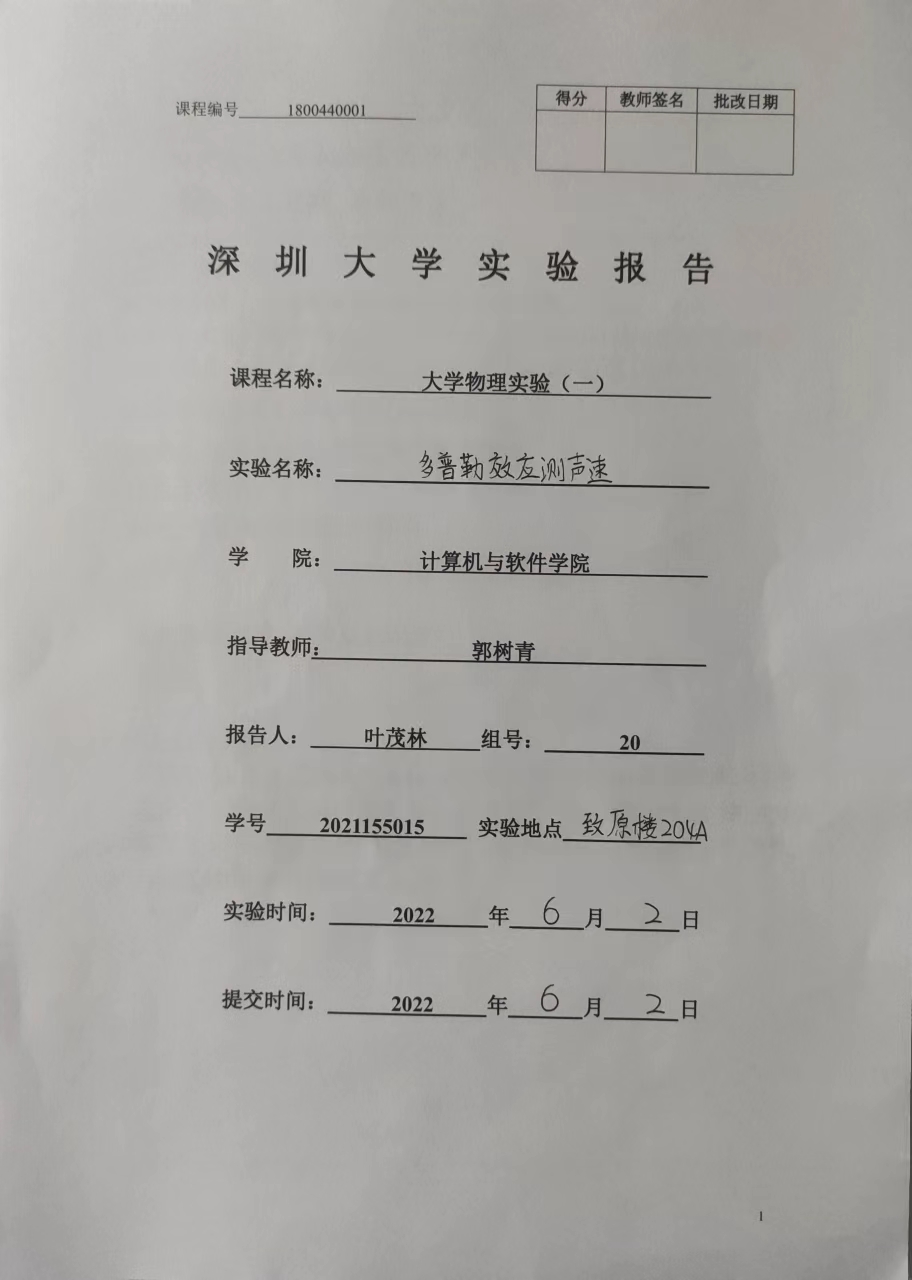 课程编号 1800440001
得分 教师签名 批改日期
深圳大学实验报告
课程名称： 大学物理实验（一）
实验名称： 多普勒效应测声速
学 院： 计算机与软件学院
指导教师： 郭树青
报告人： 叶茂林 组号： 20
学号 2021155015 实验地点 致原楼204A
实验时间： 2022 年 6 月 2 日
提交时间： 2022 年 6 月 2 日
1